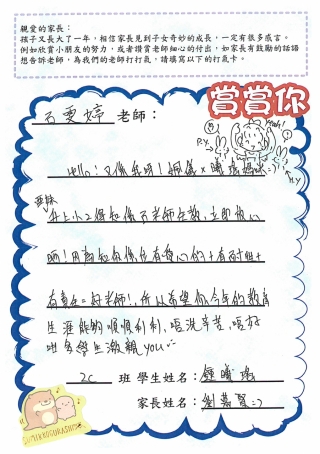 親愛的家長：
孩子又長大了一年，相信家長見到子女奇妙的成長，一定有很多感言。
例如欣賞小朋友的努力，或者讚賞老師細心的付出，如家長有鼓勵的話語
想告訴老師，為我們的老師打打氣，請填寫以下的打氣卡。
賞賞你
石雯婷 老師：
Yeah!
P.Y.
H.Y.
Hello! 又係我呀! 
升上小2得知係石老師在教，立即放心
晒! 因為知你係有愛心的+有耐性+
有責任=好老師! 所以希望你今年的教育
生涯能夠順順利利，唔洗辛苦，唔好
咁多學生激親you
2C 班 學生姓名：鍾
家長姓名：劉嘉賢=)
SUMIKKOGURASHI